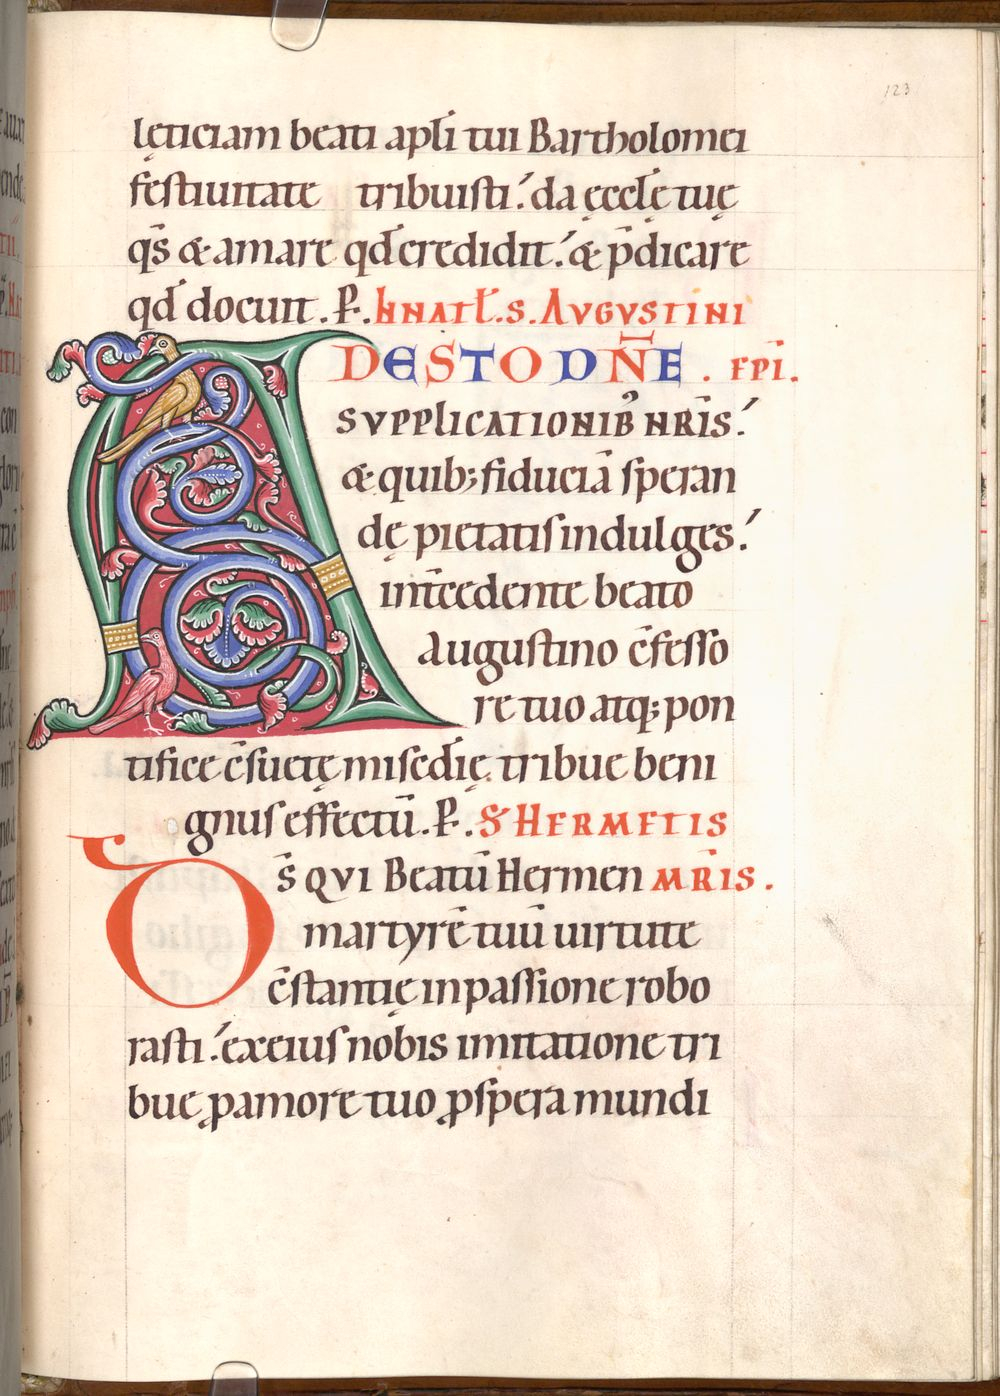 123
lęticiam beati apl̄i tui Bartholomei
festiuitate tribuisti; da ęccl̄ę tuę
qs̄ & amare qd̄ credidit; & p̄dicare
qd̄ docuit. P. IN NAT̄L. S. AUGUSTINI
ADESTO DN̄E. EPĪ.
SUPPLICATIONIB; NR̄IS;
& quib; fiduciā speran
dę pietatis indulges;
int̄cedente beato
Augustino c̄fesso
re tuo atq; pon
tifice c̄suetę misc̄dię tribue beni
gnus effectū. P. S HERMETIS
Ds̄ QUI Beatū Hermen MR̄IS.
martyrē tuū uirtute
c̄stantię in passione robo
rasti; ex eius nobis imitatione tri
bue ꝓ amore tuo ꝓspera mundi